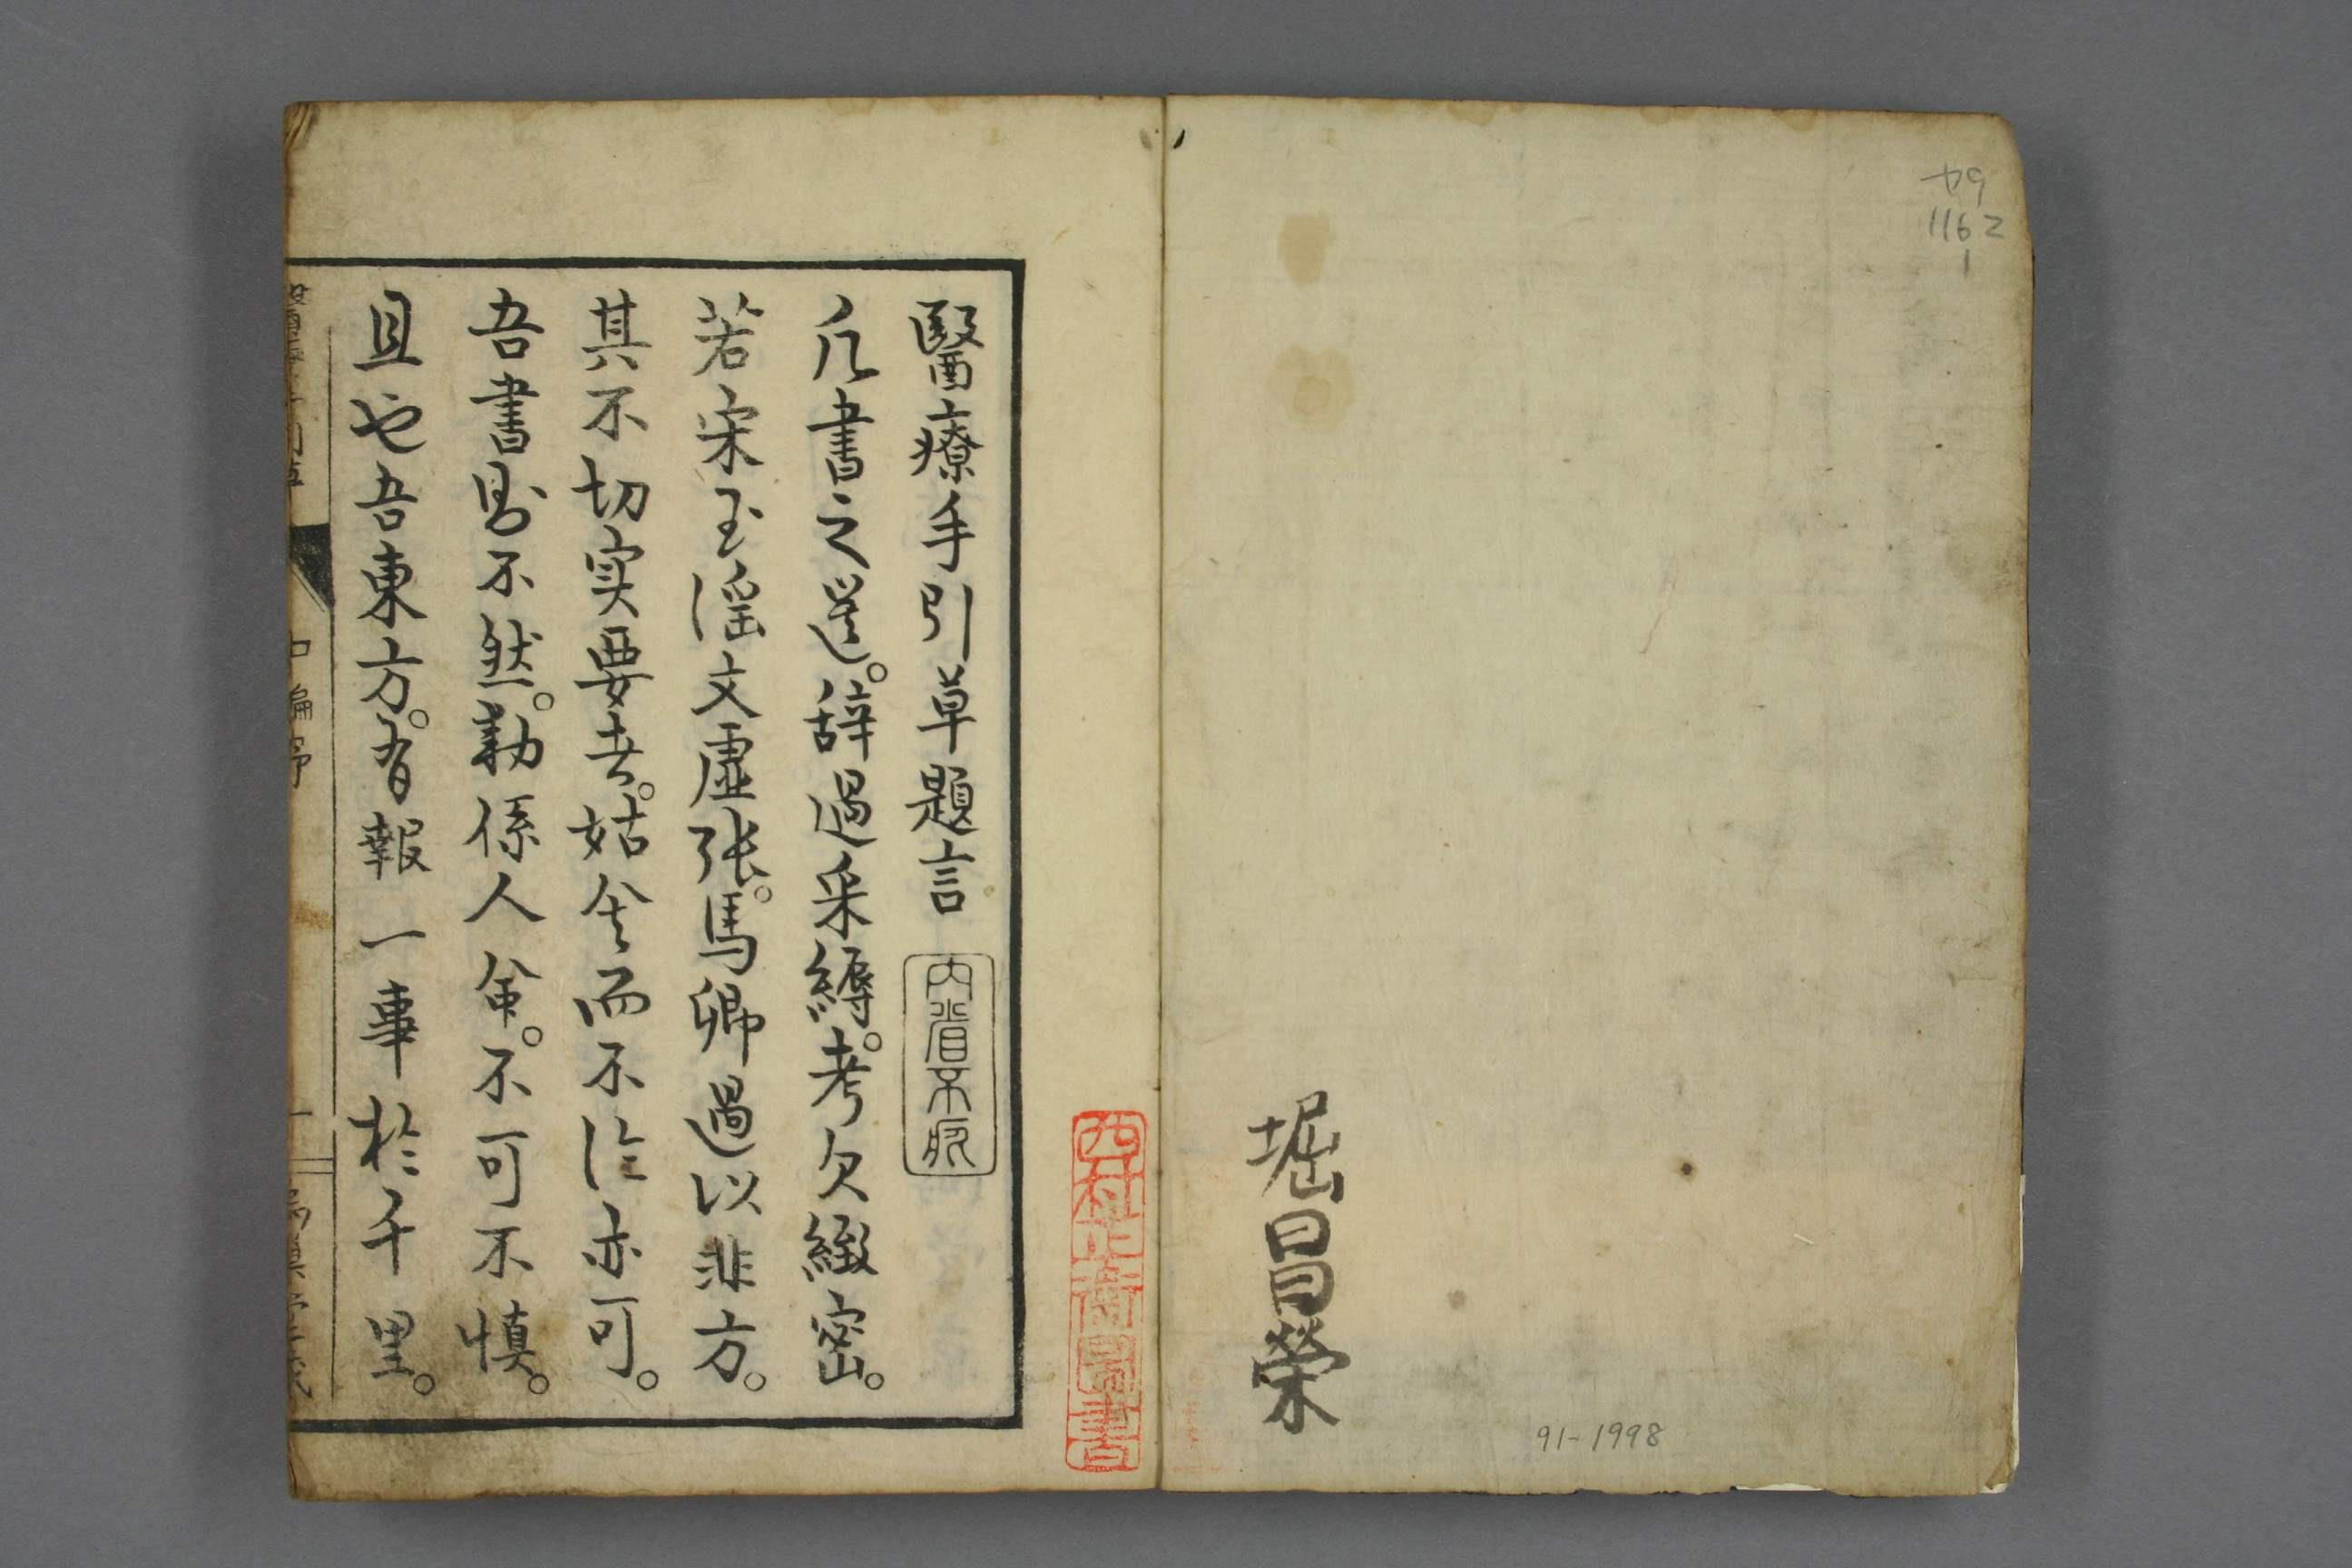 1162
1
堀昌榮
91-1998
醫療手引草題言
内省不疚
凡書之選。辞過采縟。考欠緻密。
若宋玉滛文虚張。馬卿過以非方。
其不切実要者。姑舍而不論亦可。
吾書不然。動係人命。不可不慎。
且也吾東方。有報一事於千里。
中編序
一